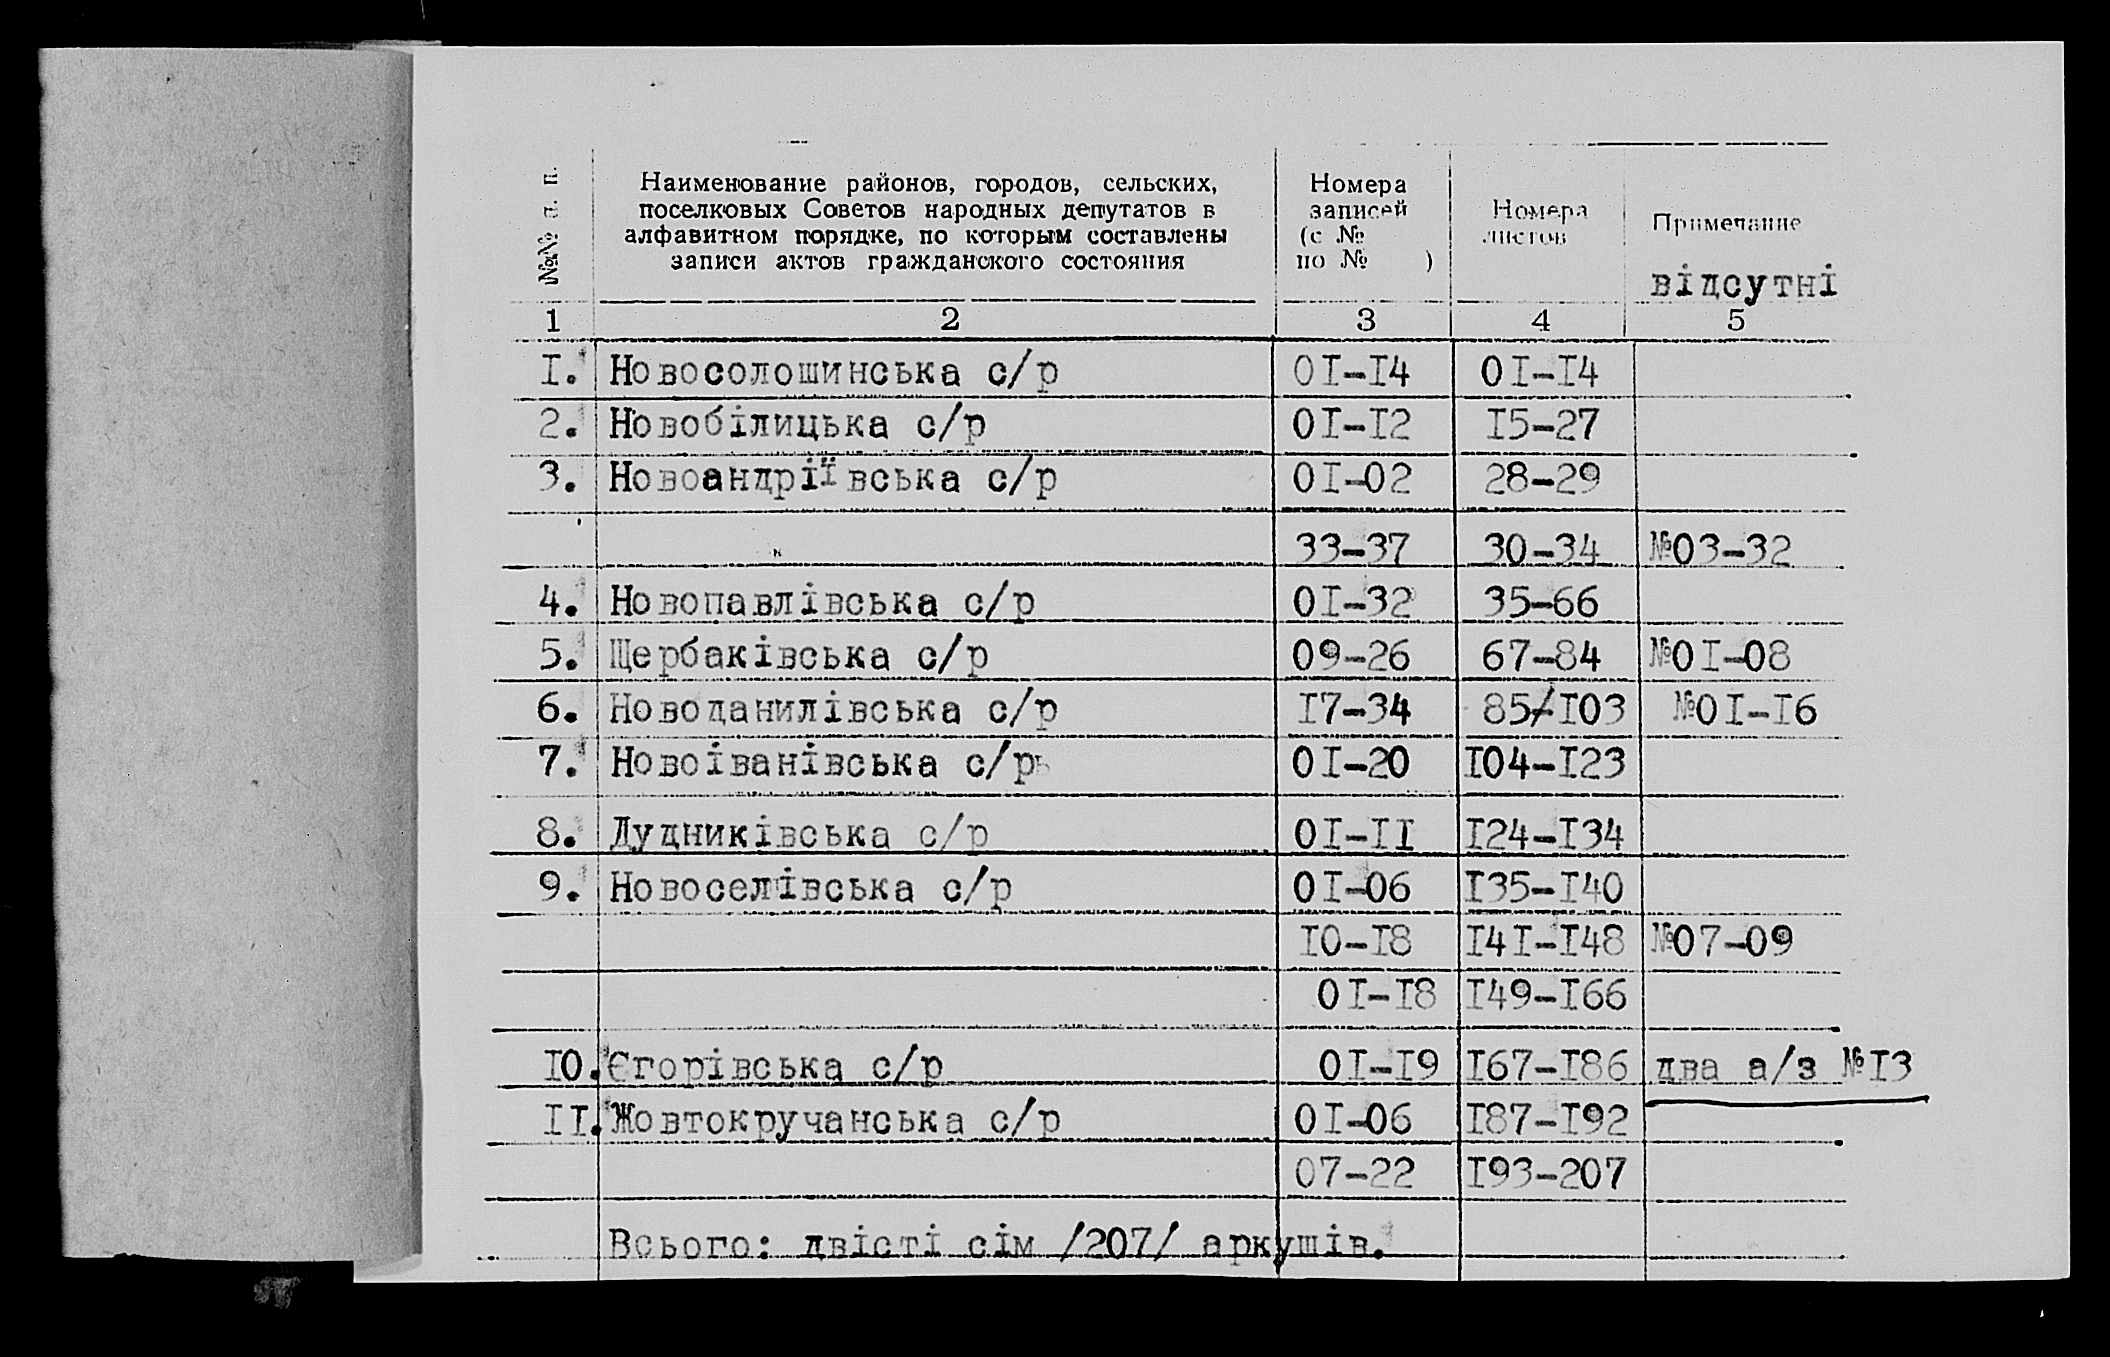 №№ п. п.
Наименование районов, городов, сельских,
поселковых Советов народных депутатов в
алфавитном порядке, по которым составлены
записи актов гражданского состояния
Номера
записей
(с №
по № )
Номера
листов
Примечание
відсутні
1 2 3 4 5
I. Новосолошинська с/р 0I-I4 0I-I4
2. Новобілицька с/р 0I-I2 I5-27
3. Новоандріївська с/р 0I-02 28-29
" 33-37 30-34 №03-32
4. Новопавлівська с/р 0I-32 35-66
5. Щербаківська с/р 09-26 67-84 №0I-08
6. Новоданилівська с/р I7-34 85/I03 №0I-I6
7. Новоіванівська с/рь 0I-20 I04-I23
8. Дудниківська с/р 0I-II I24-I34
9. Новоселівська с/р 0I-06 I35-I40
I0-I8 I4I-I48 №07-09
0I-I8 I49-I66
I0. Єгорівська с/р 0I-I9 I67-I86 два а/з №I3
II. Жовтокручанська с/р 0I-06 I87-I92
07-22 I93-207
Всього: двісті сім /207/ аркушів.